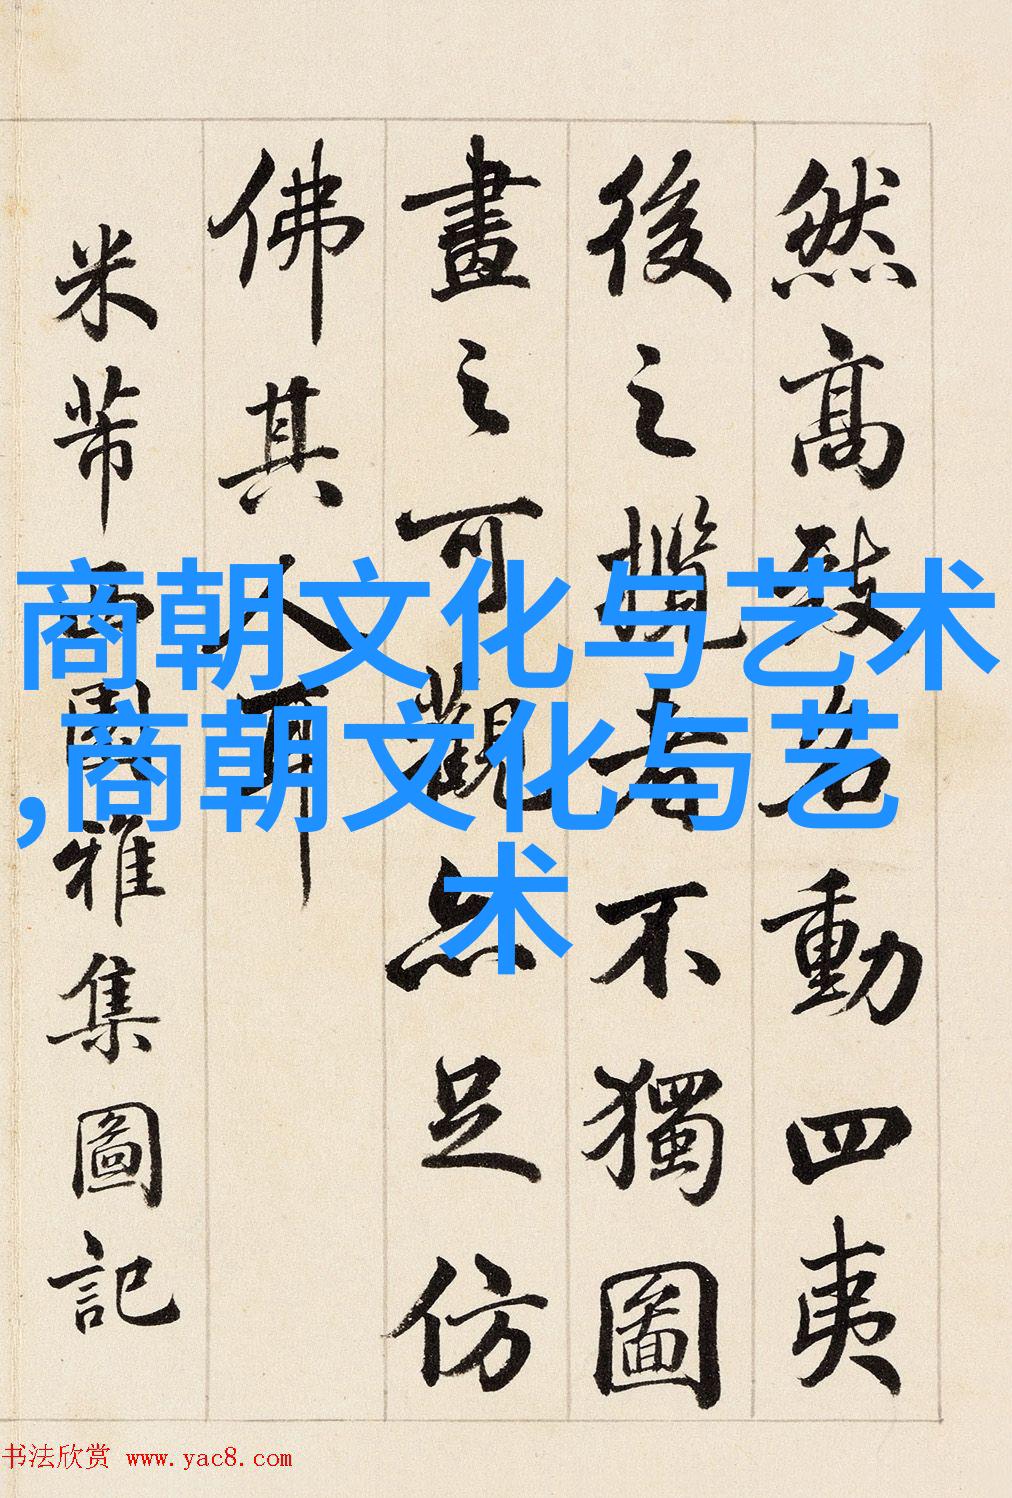 然髙致名動四夷
後之攬者不獨圖
畫之可觀亦足仿
佛其人耳
米芾西園雅集圖記
商朝文化与艺术
,商朝文化与艺
术
书法欣赏 www.yac8.com